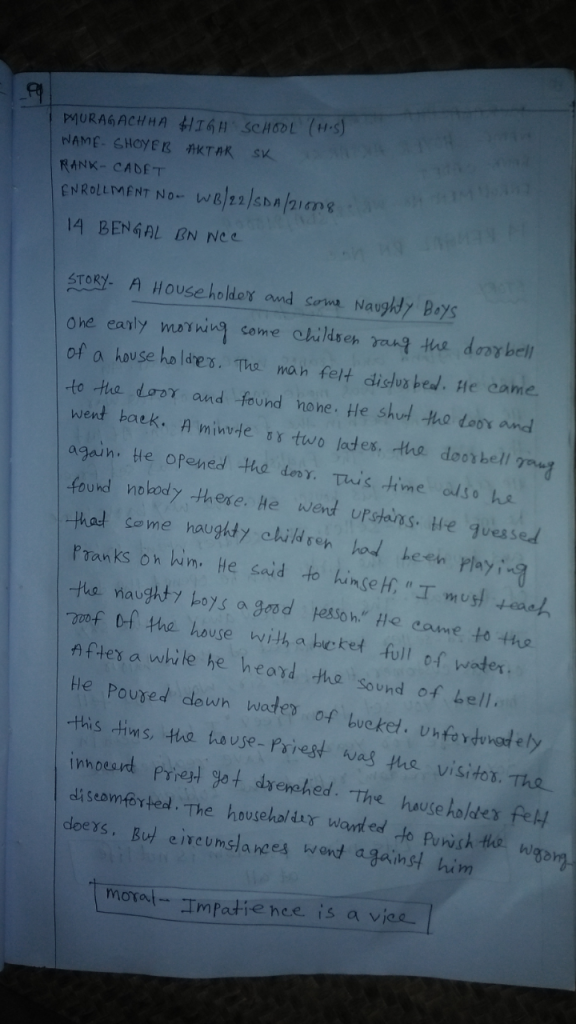 MURAGACHHA HIGH SCHOOL (H.S)
NAME- SHOYEB AKTAR SK
RANK- CADET
ENROLLMENT NO- WB/22/SDA/
14 BENGAL BN NCC
STORY- A Householder and some Naughty Boys
One early morning some children rang the doorbell
of a householder. The man felt disturbed. He came
to the door and found none. He shut the door and
went back. A minute or two later, the doorbell rang
again. He opened the door. This time also he
found nobody there. He went upstairs. He guessed
that some naughty children had been playing
Pranks on him. He said to himself, "I must teach
the naughty boys a good lesson." He came to the
roof of the house with a bucket full of water.
After a while he heard the sound of bell.
He poured down water of bucket. Unfortunately
this tims, the house-priest was the visitor. The
innocent priest got drenched. The householder felt
discomforted. The householder wanted to punish the wrong
doers. But circumstances went against him
moral- Impatience is a vice